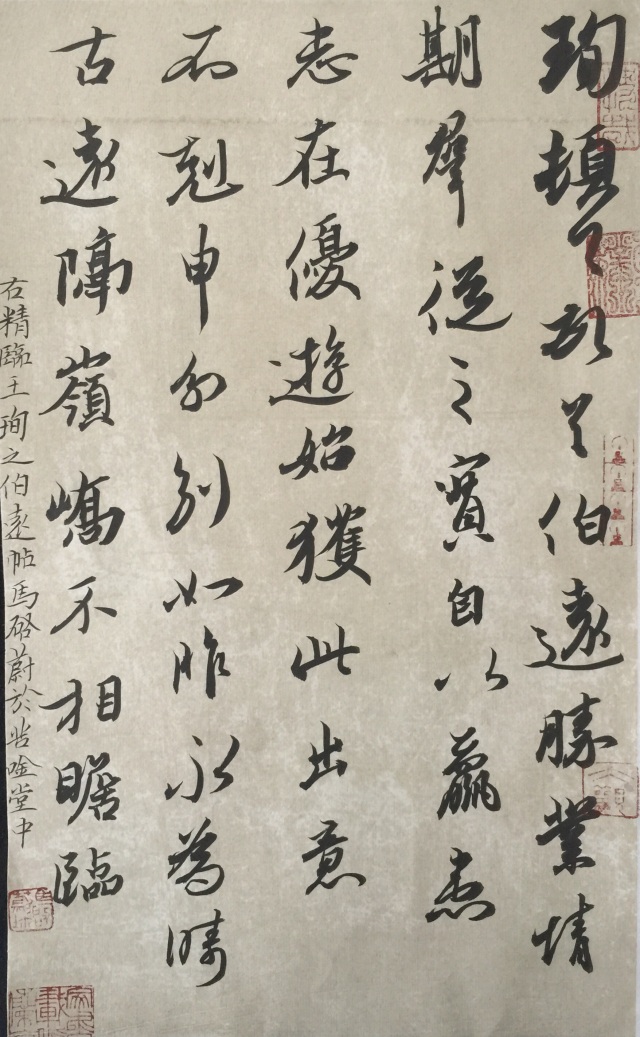 珣頓首頓首伯遠勝業情
期羣從之寶自以羸患
志在優遊始獲此出意
不剋申分別如昨永為疇
古遠隔嶺嶠不相瞻臨
右精臨王珣之伯遠帖馬硌蔚於 堂中